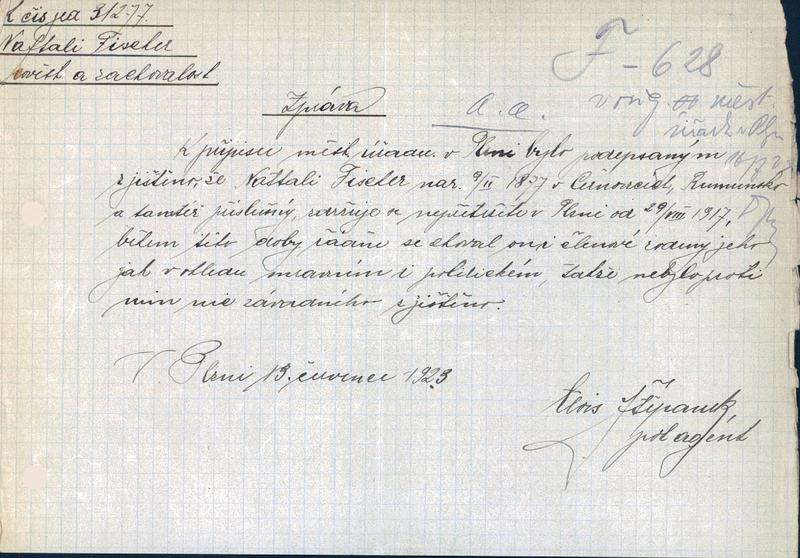 K čís jed 31277.
Naftali Fiseler
pověst a zachovalost
F-628
Zpráva
a. a.
v orig. měst.
úřadu v Plzni
K přípisu měst. úřadu v Plzni bylo podepsaným
zjištěno, že Naftali Fiseler nar. 9/II 18 7 v Černovcích, Rumunsko
a tamtéž příslušný, zdržuje se nepřetržitě v Plzni od 29/VIII 1917,
během této doby řádně se choval on i členové rodiny jeho
jak v ohledu mravním i politickém, takže nebylo proti
nim nic závadného zjištěno.
V Plzni 13. července 1923
Alois Štěpánek,
pol agént